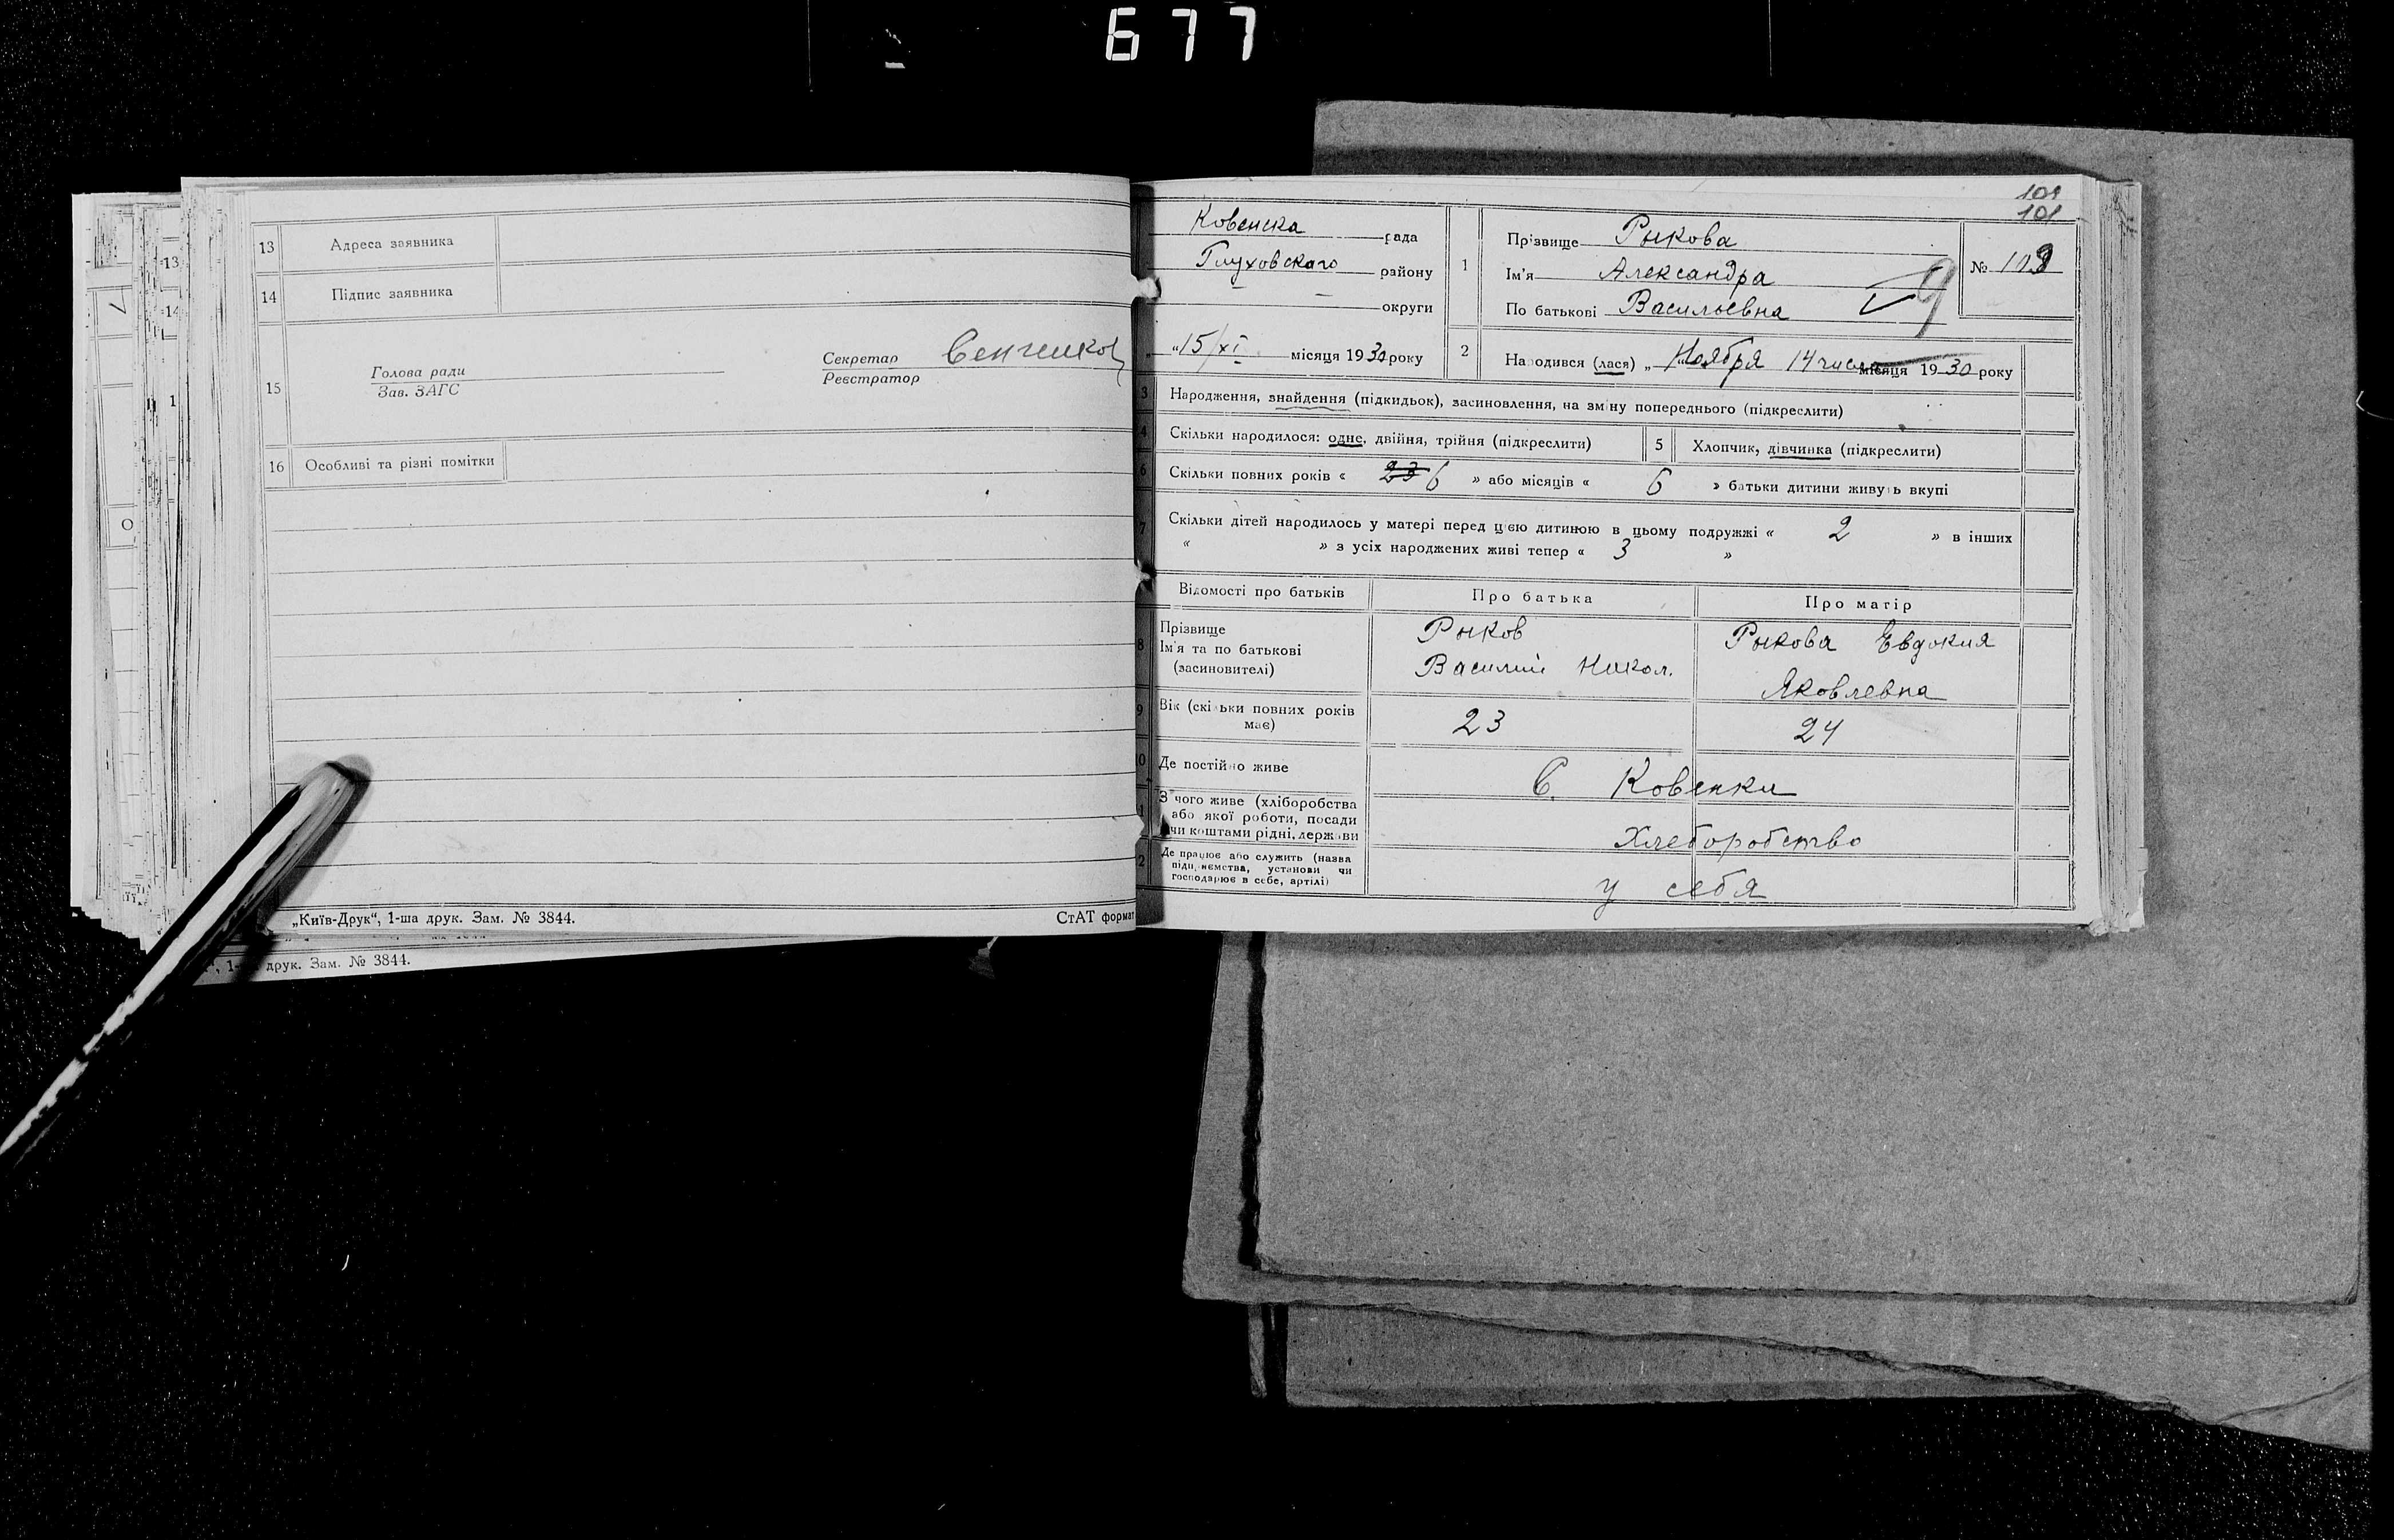 677
13 Адреса заявника
14 Підпис заявника
15 Голова ради
Зав. ЗАГС
Секретар
Реєстратор
16 Особливі та різні помітки
„Київ-Друк“, 1-ша друк. Зам. № 3844.
СтАТ формат
друк. Зам. № 3844.
101
Ковенска рада
Глуховского району
округи
„15/XI місяця 1930 року
1 Прізвище Рыкова
Ім'я Александра
По батькові Васильевна
№ 109
2 Народився (лася) „ Ноября 14 числа місяця 1930 року
3 Народження, знайдення (підкидьок), засиновлення, на зміну попереднього (підкреслити)
4 Скільки народилося: одне, двійня, трійня (підкреслити)
5 Хлопчик, дівчинка (підкреслити)
6 Скільки повних років « 23 6 » або місяців « 6 » батьки дитини живуть вкупі
7 Скільки дітей народилось у матері перед цією дитиною в цьому подружжі « 2 » в інших
« » з усіх народжених живі тепер « 3 »
Відомості про батьків Про батька Про матір
8 Прізвище
Ім'я та по батькові
(засиновителі)
Рыков
Василий Никол.
Рыкова Евдокия
Яковлевна
9 Вік (скільки повних років
має)
23 24
10 Де постійно живе
С. Ковенки
11 З чого живе (хліборобства
або якої роботи, посади
чи коштами рідні, держави
Хлеборобство
12 Де працює або служить (назва
підприємства, установи чи
господарює в себе, артілі)
у себя